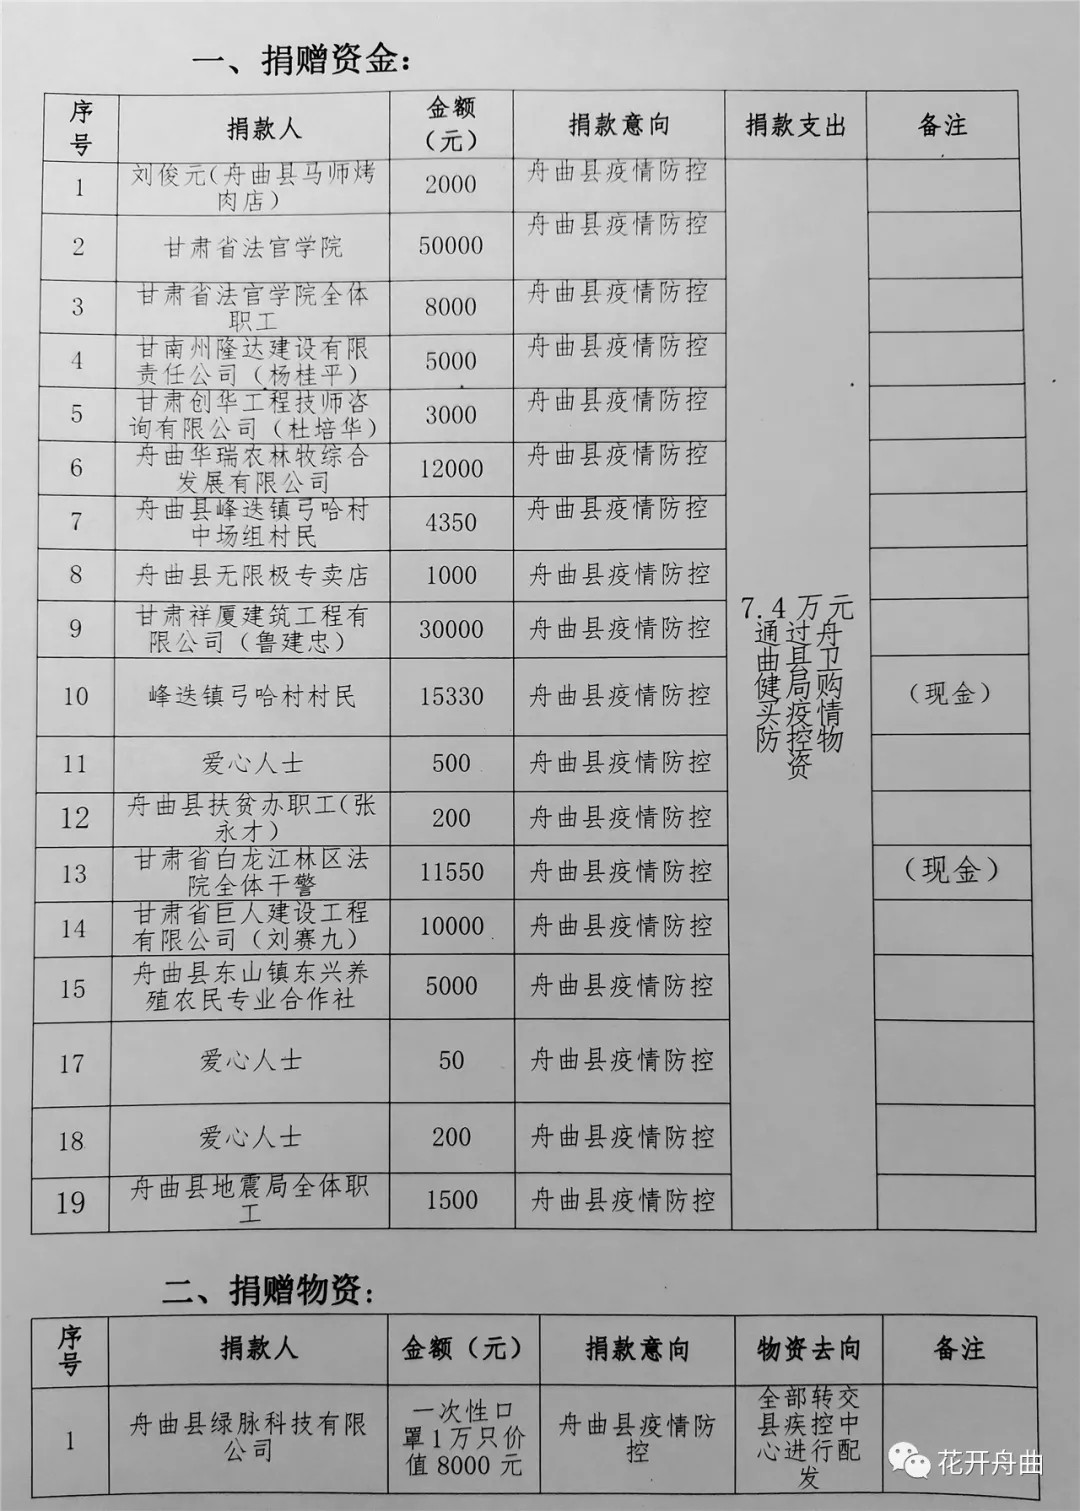 一、捐赠资金：
序号 捐款人 金额（元） 捐款意向 捐款支出 备注
1 刘俊元（舟曲县马师烤肉店） 2000 舟曲县疫情防控
2 甘肃省法官学院 50000 舟曲县疫情防控
3 甘肃省法官学院全体职工 8000 舟曲县疫情防控
4 甘南州隆达建设有限责任公司（杨桂平） 5000 舟曲县疫情防控
5 甘肃创华工程技师咨询有限公司（杜培华） 3000 舟曲县疫情防控
6 舟曲华瑞农林牧综合发展有限公司 12000 舟曲县疫情防控
7 舟曲县峰迭镇弓哈村中场组村民 4350 舟曲县疫情防控
8 舟曲县无限极专卖店 1000 舟曲县疫情防控
9 甘肃祥厦建筑工程有限公司（鲁建忠） 30000 舟曲县疫情防控
7.4万元通过舟曲县卫健局购买疫情防控物资
10 峰迭镇弓哈村村民 15330 舟曲县疫情防控 （现金）
11 爱心人士 500 舟曲县疫情防控
12 舟曲县扶贫办职工（张永才） 200 舟曲县疫情防控
13 甘肃省白龙江林区法院全体干警 11550 舟曲县疫情防控 （现金）
14 甘肃省巨人建设工程有限公司（刘赛九） 10000 舟曲县疫情防控
15 舟曲县东山镇东兴养殖农民专业合作社 5000 舟曲县疫情防控
17 爱心人士 50 舟曲县疫情防控
18 爱心人士 200 舟曲县疫情防控
19 舟曲县地震局全体职工 1500 舟曲县疫情防控
二、捐赠物资：
序号 捐款人 金额（元） 捐款意向 物资去向 备注
1 舟曲县绿脉科技有限公司 一次性口罩1万只价值8000元 舟曲县疫情防控 全部转交县疾控中心进行配发
花开舟曲